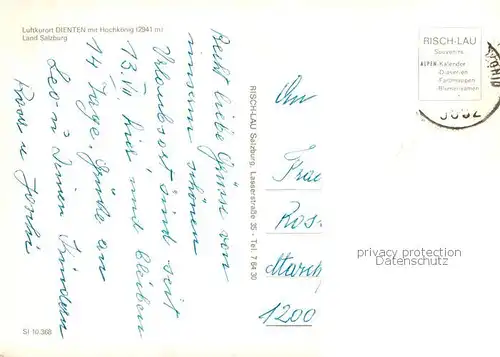 Luftkurort DIENTEN mit Hochkönig (2941 m)
Land Salzburg
Recht liebe Grüsse von
unsern schönen
Urlaubsort sind seit
13. hier und bleiben
14 Tage. Grüsse an
Leo n Deinen Kindern
Rosa u
SI 10.368
RISCH-LAU Salzburg, Lasserstraße 35 - Tel. 7 64 30
An
Frau
Ros
March
1200
RISCH-LAU
Souvenirs
ALPEN-Kalender
-Diaserien
-Farbmappen
-Blumensamen
privacy protection
Datenschutz